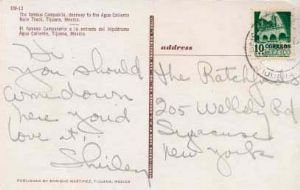 The famous Campanile, doorway to the Agua Caliente
Race Track, Tijuana, Mexico.
El famoso Campanario a la entrada del Hipódromo
Agua Caliente, Tijuana, Mexico.
Hi
You should
come down
here you'd
love it!
Shirley
PUBLISHED BY ENRIQUE MARTINEZ, TIJUANA, MEXICO
address
10 CORREOS
MEXICO
The
205 Wellesley Rd
Syracuse
New York